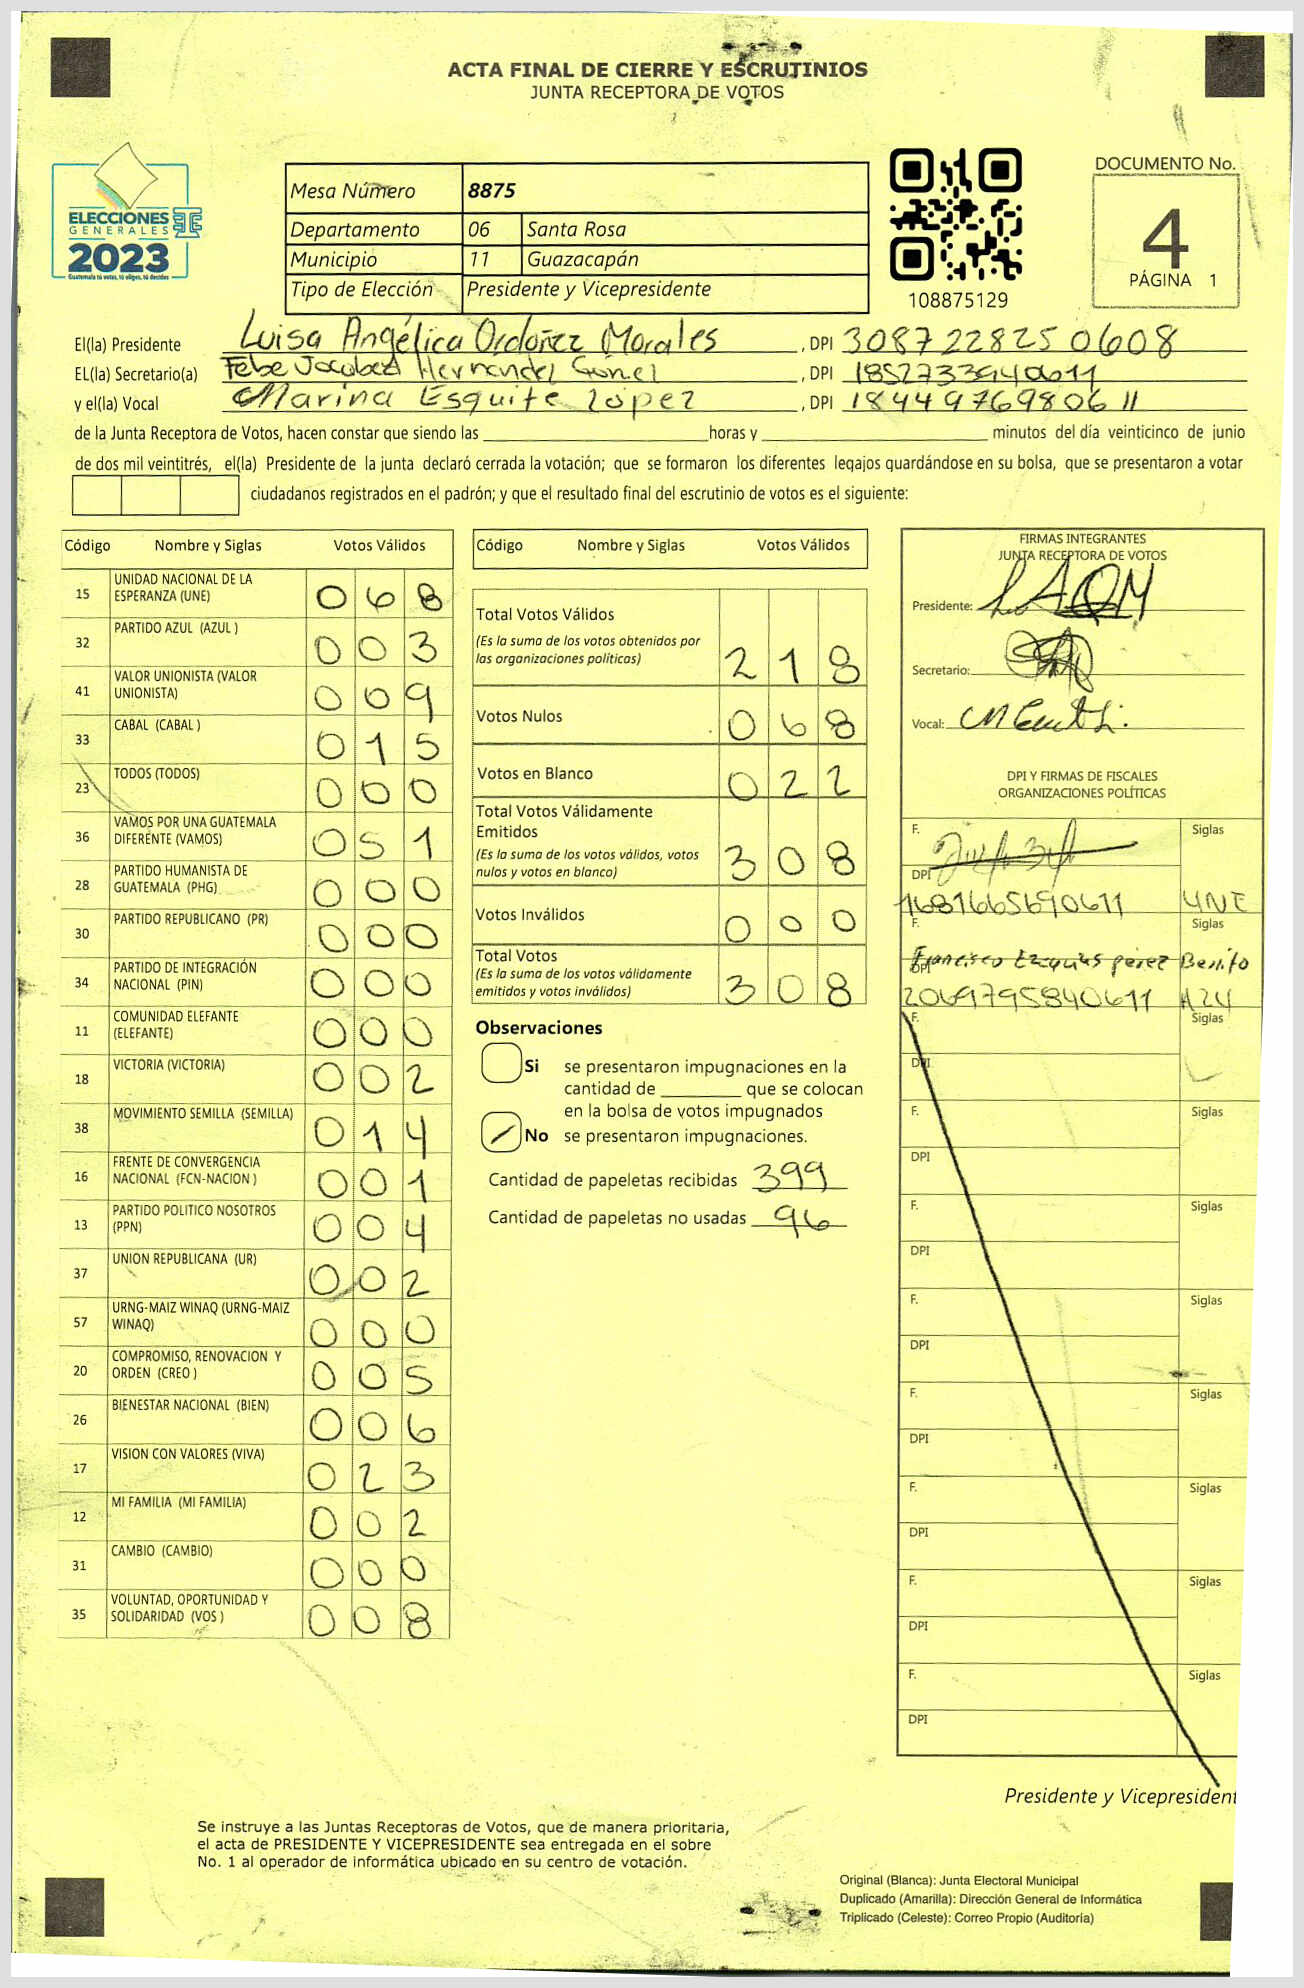 ACTA FINAL DE CIERRE Y ESCRUTINIOS
JUNTA RECEPTORA DE VOTOS
ELECCIONES
GENERALES
2023
Guatemala tú votas, tú eliges, tú decides
Mesa Número 8875
Departamento 06 Santa Rosa
Municipio 11 Guazacapán
Tipo de Elección Presidente y Vicepresidente
108875129
DOCUMENTO No.
4
PÁGINA 1
El(la) Presidente Luisa Angélica Ordoñez Morales, DPI 3087228250608
EL(la) Secretario(a) Febe Hernandez, DPI 1852733940611
y el(la) Vocal Marina Esquite López, DPI 1844976980611
de la Junta Receptora de Votos, hacen constar que siendo las horas y minutos del día veinticinco de junio
de dos mil veintitrés, el(la) Presidente de la junta declaró cerrada la votación; que se formaron los diferentes legajos guardándose en su bolsa, que se presentaron a votar
ciudadanos registrados en el padrón; y que el resultado final del escrutinio de votos es el siguiente:
Código Nombre y Siglas Votos Válidos
15 UNIDAD NACIONAL DE LA ESPERANZA (UNE) 068
32 PARTIDO AZUL (AZUL ) 003
41 VALOR UNIONISTA (VALOR UNIONISTA) 009
33 CABAL (CABAL ) 015
23 TODOS (TODOS) 000
36 VAMOS POR UNA GUATEMALA DIFERENTE (VAMOS) 051
28 PARTIDO HUMANISTA DE GUATEMALA (PHG) 000
30 PARTIDO REPUBLICANO (PR) 000
34 PARTIDO DE INTEGRACIÓN NACIONAL (PIN) 000
11 COMUNIDAD ELEFANTE (ELEFANTE) 000
18 VICTORIA (VICTORIA) 002
38 MOVIMIENTO SEMILLA (SEMILLA) 014
16 FRENTE DE CONVERGENCIA NACIONAL (FCN-NACION ) 001
13 PARTIDO POLITICO NOSOTROS (PPN) 004
37 UNION REPUBLICANA (UR) 002
57 URNG-MAIZ WINAQ (URNG-MAIZ WINAQ) 000
20 COMPROMISO, RENOVACION Y ORDEN (CREO ) 005
26 BIENESTAR NACIONAL (BIEN) 006
17 VISION CON VALORES (VIVA) 023
12 MI FAMILIA (MI FAMILIA) 002
31 CAMBIO (CAMBIO) 000
35 VOLUNTAD, OPORTUNIDAD Y SOLIDARIDAD (VOS ) 008
Código Nombre y Siglas Votos Válidos
Total Votos Válidos
(Es la suma de los votos obtenidos por
las organizaciones políticas) 218
Votos Nulos 068
Votos en Blanco 022
Total Votos Válidamente
Emitidos
(Es la suma de los votos válidos, votos
nulos y votos en blanco) 308
Votos Inválidos 000
Total Votos
(Es la suma de los votos válidamente
emitidos y votos inválidos) 308
Observaciones
Si se presentaron impugnaciones en la
cantidad de que se colocan
en la bolsa de votos impugnados
No se presentaron impugnaciones.
Cantidad de papeletas recibidas 399
Cantidad de papeletas no usadas 96
FIRMAS INTEGRANTES
JUNTA RECEPTORA DE VOTOS
Presidente: LAOM
Secretario:
Vocal:
DPI Y FIRMAS DE FISCALES
ORGANIZACIONES POLÍTICAS
F. Siglas
DPI 1681665690611 UNE
F. Siglas
Francisco Ezequias perez Benito
DPI 2069795840611 A24
F. Siglas
DPI
F. Siglas
DPI
F. Siglas
DPI
F. Siglas
DPI
F. Siglas
DPI
F. Siglas
DPI
F. Siglas
DPI
F. Siglas
DPI
Presidente y Vicepresident
Se instruye a las Juntas Receptoras de Votos, que de manera prioritaria,
el acta de PRESIDENTE Y VICEPRESIDENTE sea entregada en el sobre
No. 1 al operador de informática ubicado en su centro de votación.
Original (Blanca): Junta Electoral Municipal
Duplicado (Amarilla): Dirección General de Informática
Triplicado (Celeste): Correo Propio (Auditoría)